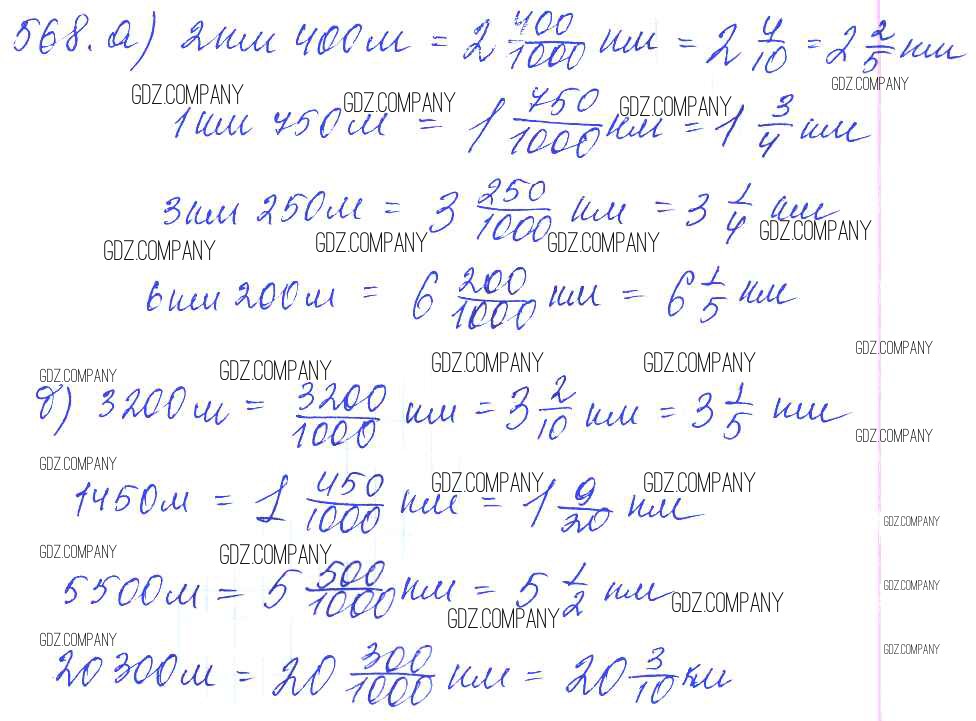 568. а) 2 км 400 м = 2 400/1000 км = 2 4/10 = 2 2/5 км
GDZ.COMPANY GDZ.COMPANY GDZ.COMPANY GDZ.COMPANY
1 км 750 м = 1 750/1000 км = 1 3/4 км
3 км 250 м = 3 250/1000 км = 3 1/4 км
GDZ.COMPANY GDZ.COMPANY GDZ.COMPANY GDZ.COMPANY
6 км 200 м = 6 200/1000 км = 6 1/5 км
GDZ.COMPANY GDZ.COMPANY GDZ.COMPANY GDZ.COMPANY GDZ.COMPANY
б) 3200 м = 3200/1000 км = 3 2/10 км = 3 1/5 км
GDZ.COMPANY
GDZ.COMPANY GDZ.COMPANY GDZ.COMPANY
1450 м = 1 450/1000 км = 1 9/20 км
GDZ.COMPANY
GDZ.COMPANY GDZ.COMPANY
5500 м = 5 500/1000 км = 5 1/2 км
GDZ.COMPANY
GDZ.COMPANY GDZ.COMPANY
GDZ.COMPANY GDZ.COMPANY
20 300 м = 20 300/1000 км = 20 3/10 км